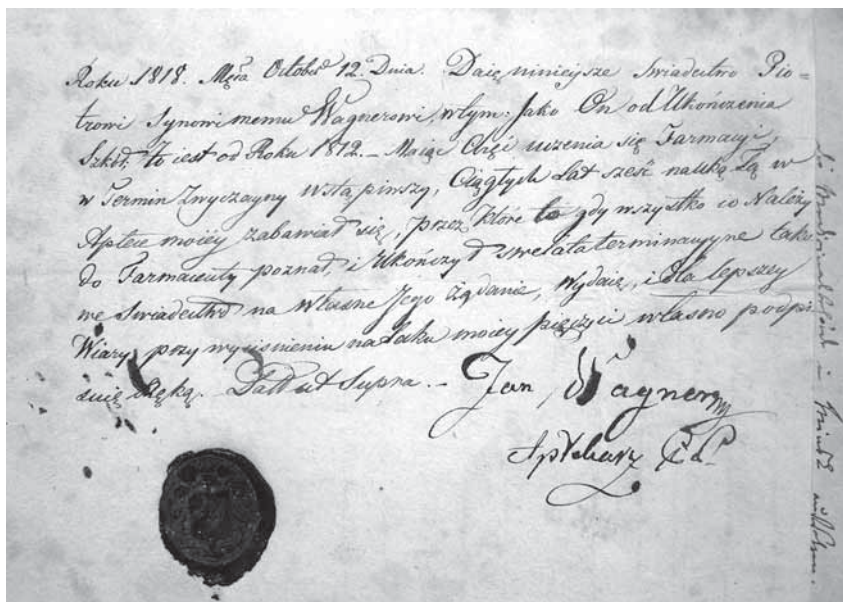 Roku 1818. Mca Octobr 12. Dnia. Daię ninieysze Swiadectwo Pio=
trowi Synowi memu Wagnerowi, w tym: Jako On od Ukończenia
Szkół, to iest od Roku 1812. – Maiąc Chęć uczenia się Farmacyi,
w Termin Zwyczayny wstąpiwszy, Ciągłych Lat sześć nauką Tą w
Aptece moiéy zabawiał się, przez które to gdy wszystko co Należy
do Farmaceuty poznał, i Ukończył swe lata terminacyyne, takó
we Swiadectwo na własne Jego żądanie, wydaię, i dla lepszey
Wiary, przy wyciśnieniu na Laku moiey pieczęci własno podpi
suię Ręką. Datt ut Supra. –
Jan Wagner
Aptekarz